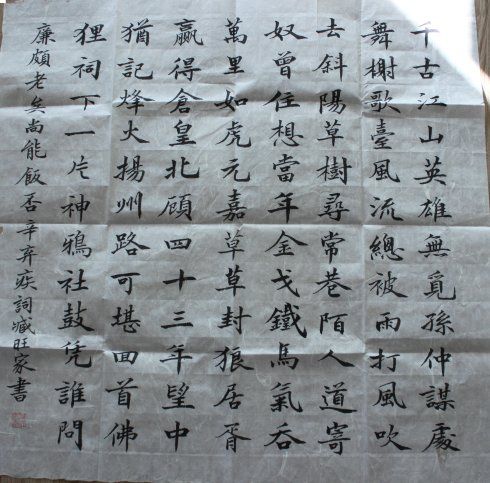 千古江山英雄無覓孫仲謀處
舞榭歌臺風流總被雨打風吹
去斜陽草樹尋常巷陌人道寄
奴曾住想當年金戈鐵馬氣吞
萬里如虎元嘉草草封狼居胥
贏得倉皇北顧四十三年望中
猶記烽火揚州路可堪回首佛
狸祠下一片神鴉社鼓凭誰問
廉頗老矣尚能飯否辛弃疾詞臧旺家書